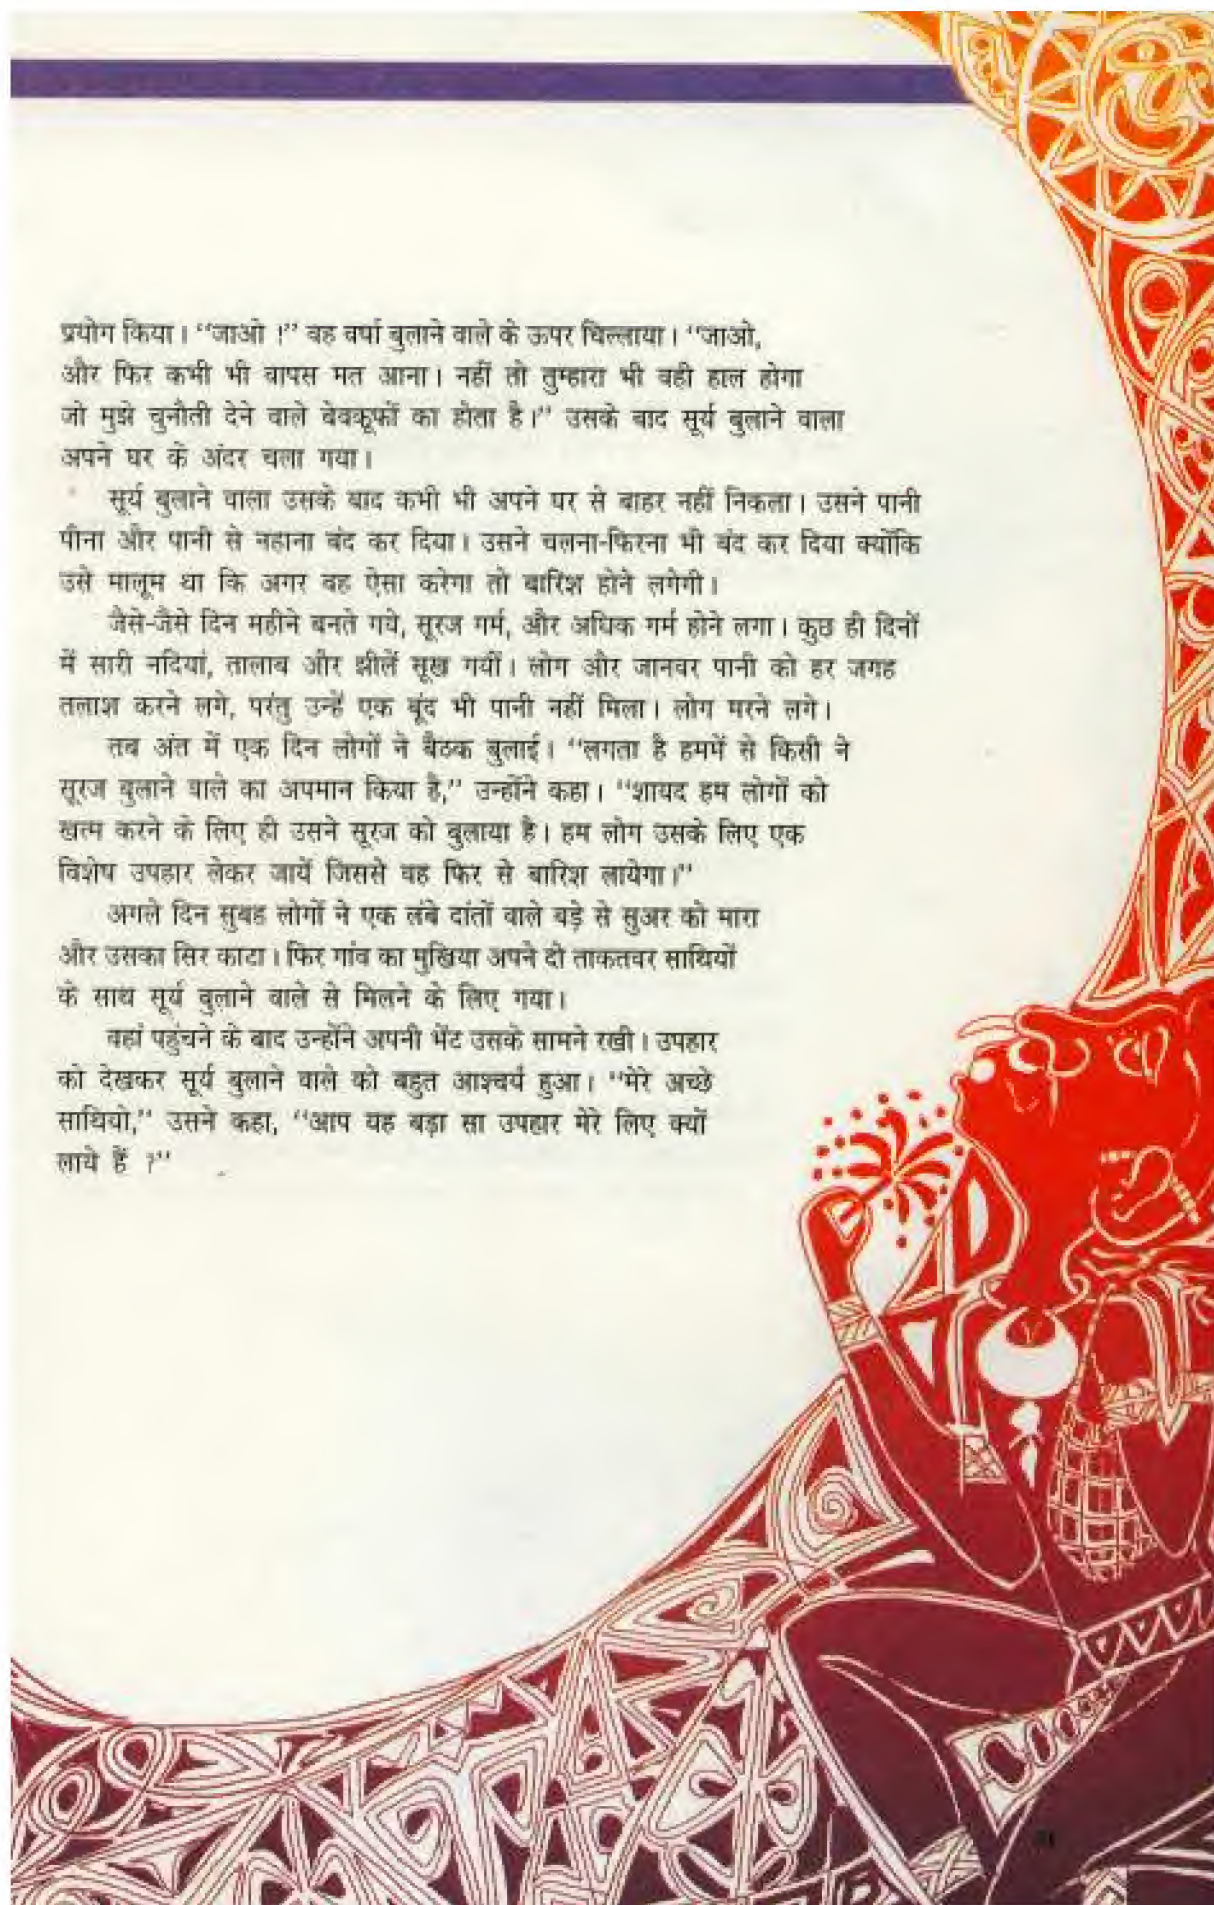 प्रयोग किया। “जाओ !” वह वर्षा बुलाने वाले के ऊपर चिल्लाया। “जाओ,
और फिर कभी भी वापस मत आना। नहीं तो तुम्हारा भी वही हाल होगा
जो मुझे चुनौती देने वाले बेवकूफों का होता है।” उसके बाद सूर्य बुलाने वाला
अपने घर के अंदर चला गया।
सूर्य बुलाने वाला उसके बाद कभी भी अपने घर से बाहर नहीं निकला। उसने पानी
पीना और पानी से नहाना बंद कर दिया। उसने चलना-फिरना भी बंद कर दिया क्योंकि
उसे मालूम था कि अगर वह ऐसा करेगा तो बारिश होने लगेगी।
जैसे-जैसे दिन महीने बनते गये, सूरज गर्म, और अधिक गर्म होने लगा। कुछ ही दिनों
में सारी नदियां, तालाब और झीलें सूख गयीं। लोग और जानवर पानी को हर जगह
तलाश करने लगे, परंतु उन्हें एक बूंद भी पानी नहीं मिला। लोग मरने लगे।
तब अंत में एक दिन लोगों ने बैठक बुलाई। “लगता है हममें से किसी ने
सूरज बुलाने वाले का अपमान किया है,” उन्होंने कहा। “शायद हम लोगों को
खत्म करने के लिए ही उसने सूरज को बुलाया है। हम लोग उसके लिए एक
विशेष उपहार लेकर जायें जिससे वह फिर से बारिश लायेगा।”
अगले दिन सुबह लोगों ने एक लंबे दांतों वाले बड़े से सुअर को मारा
और उसका सिर काटा। फिर गांव का मुखिया अपने दो ताकतवर साथियों
के साथ सूर्य बुलाने वाले से मिलने के लिए गया।
वहां पहुंचने के बाद उन्होंने अपनी भेंट उसके सामने रखी। उपहार
को देखकर सूर्य बुलाने वाले को बहुत आश्चर्य हुआ। “मेरे अच्छे
साथियो,” उसने कहा, “आप यह बड़ा सा उपहार मेरे लिए क्यों
लाये हैं ?”